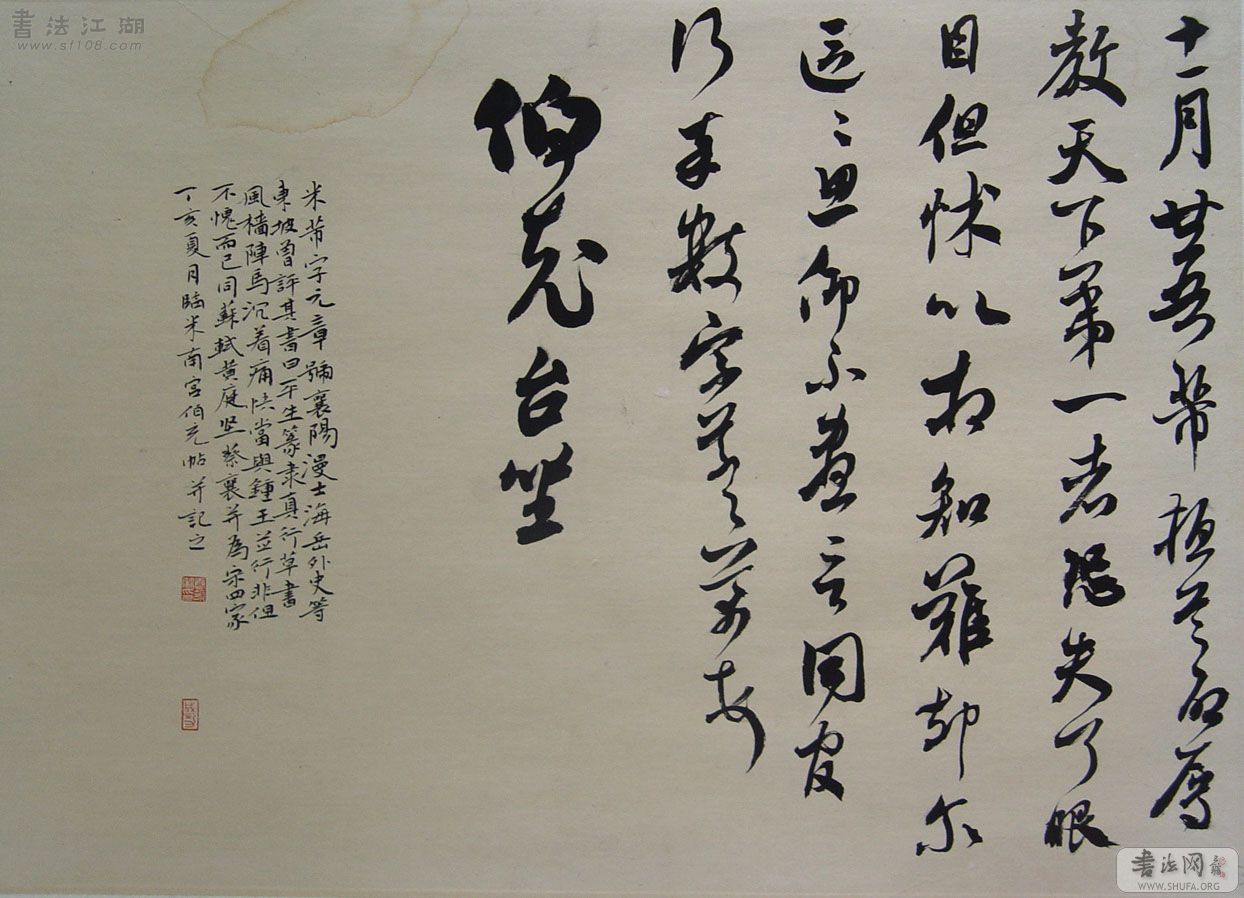 書法江湖
www.sf108.com
十一月廿五日芾頓首启辱
教天下第一者恐失了眼
目但怵以相知難却尔
區〻思仰不盡言同官
行奉數字草〻芾頓首
伯充台坐
米芾字元章號襄陽漫士海岳外史等
東坡曾評其書曰平生篆隶真行草書
風檣陣馬沉着痛快當與鍾王並行非但
不愧而已同蘇軾黄庭坚蔡襄并為宋四家
丁亥夏月臨米南宮伯充帖并記之
書法网
WWW.SHUFA.ORG